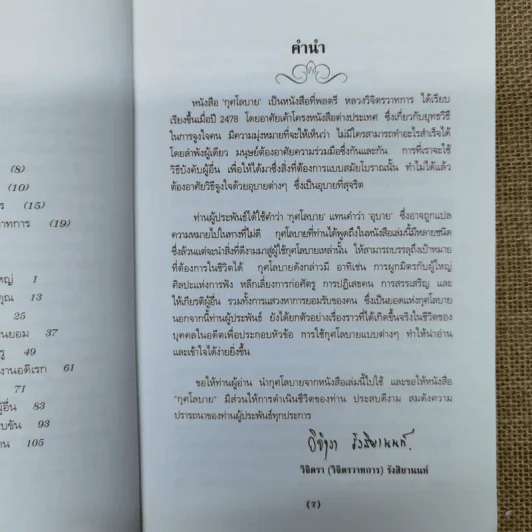 (8)
(10)
(15)
(19)
1
13
25
37
49
61
71
83
93
105
คำนำ
หนังสือ 'กุศโลบาย' เป็นหนังสือที่พลตรี หลวงวิจิตรวาทการ ได้เรียบ
เรียงขึ้นเมื่อปี 2478 โดยอาศัยเค้าโครงหนังสือต่างประเทศ ซึ่งเกี่ยวกับยุทธวิธี
ในการจูงใจคน มีความมุ่งหมายที่จะให้เห็นว่า ไม่มีใครสามารถทำอะไรสำเร็จได้
โดยลำพังผู้เดียว มนุษย์ต้องอาศัยความร่วมมือซึ่งกันและกัน การที่เราจะใช้
วิธีบังคับผู้อื่น เพื่อให้ได้มาซึ่งสิ่งที่ต้องการแบบสมัยโบราณนั้น ทำไม่ได้แล้ว
ต้องอาศัยวิธีจูงใจด้วยอุบายต่างๆ ซึ่งเป็นอุบายที่สุจริต
ท่านผู้ประพันธ์ได้ใช้คำว่า 'กุศโลบาย' แทนคำว่า 'อุบาย' ซึ่งอาจถูกแปล
ความหมายไปในทางที่ไม่ดี กุศโลบายที่ท่านได้พูดถึงในหนังสือเล่มนี้มีหลายชนิด
ซึ่งล้วนแต่จะนำสิ่งที่ดีงามมาสู่ผู้ใช้กุศโลบายเหล่านั้น ให้สามารถบรรลุถึงเป้าหมาย
ที่ต้องการในชีวิตได้ กุศโลบายดังกล่าวมี อาทิเช่น การผูกมิตรกับผู้ใหญ่
ศิลปะแห่งการฟัง หลีกเลี่ยงการก่อศัตรู การปฏิเสธคน การสรรเสริญ และ
ให้เกียรติผู้อื่น รวมทั้งการแสวงหาการยอมรับของคน ซึ่งเป็นยอดแห่งกุศโลบาย
นอกจากนี้ท่านผู้ประพันธ์ ยังได้ยกตัวอย่างเรื่องราวที่ได้เกิดขึ้นจริงในชีวิตของ
บุคคลในอดีตเพื่อประกอบหัวข้อ การใช้กุศโลบายแบบต่างๆ ทำให้น่าอ่าน
และเข้าใจได้ง่ายยิ่งขึ้น
ขอให้ท่านผู้อ่าน นำกุศโลบายจากหนังสือเล่มนี้ไปใช้ และขอให้หนังสือ
"กุศโลบาย" มีส่วนให้การดำเนินชีวิตของท่าน ประสบดีงาม สมดังความ
ปรารถนาของท่านผู้ประพันธ์ทุกประการ
วิจิตรา รังสิยานนท์
วิจิตรา (วิจิตรวาทการ) รังสิยานนท์
(7)